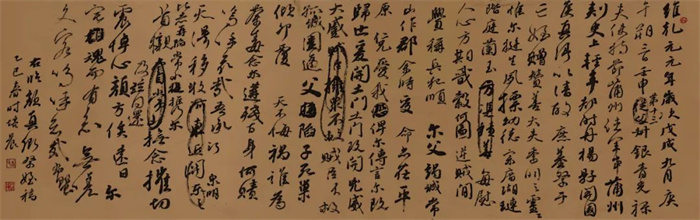 維乾元元年歲次戊戌九月庚
午朔三日壬申第十三叔銀青光祿
夫使持節蒲州諸軍事蒲州
刺史上輕車都尉丹楊縣開國
侯真卿以清酌庶羞祭于
亡姪贈贊善大夫季明之靈
惟爾挺生夙標幼德宗廟瑚璉
階庭蘭玉方憑積善每慰
人心方期戩穀何圖逆賊閒
釁稱兵犯順爾父竭誠常
山作郡余時受命亦在平
原仁兄愛我俾爾傳言爾既
歸止爰開土門土門既開兇威
大蹙賊臣擁眾不救
孤城圍逼父陷子死巢
傾卵覆天不悔禍誰為
荼毒念爾遘殘百身何贖
嗚呼哀哉吾承
天澤移牧河關爾明
比者再陷常山攜爾
首櫬及茲同還撫念摧切
震悼心顏方俟遠日爾
宅魂而有知無嗟
久客嗚呼哀哉尚饗
右臨顏真卿祭姪稿
乙巳春時